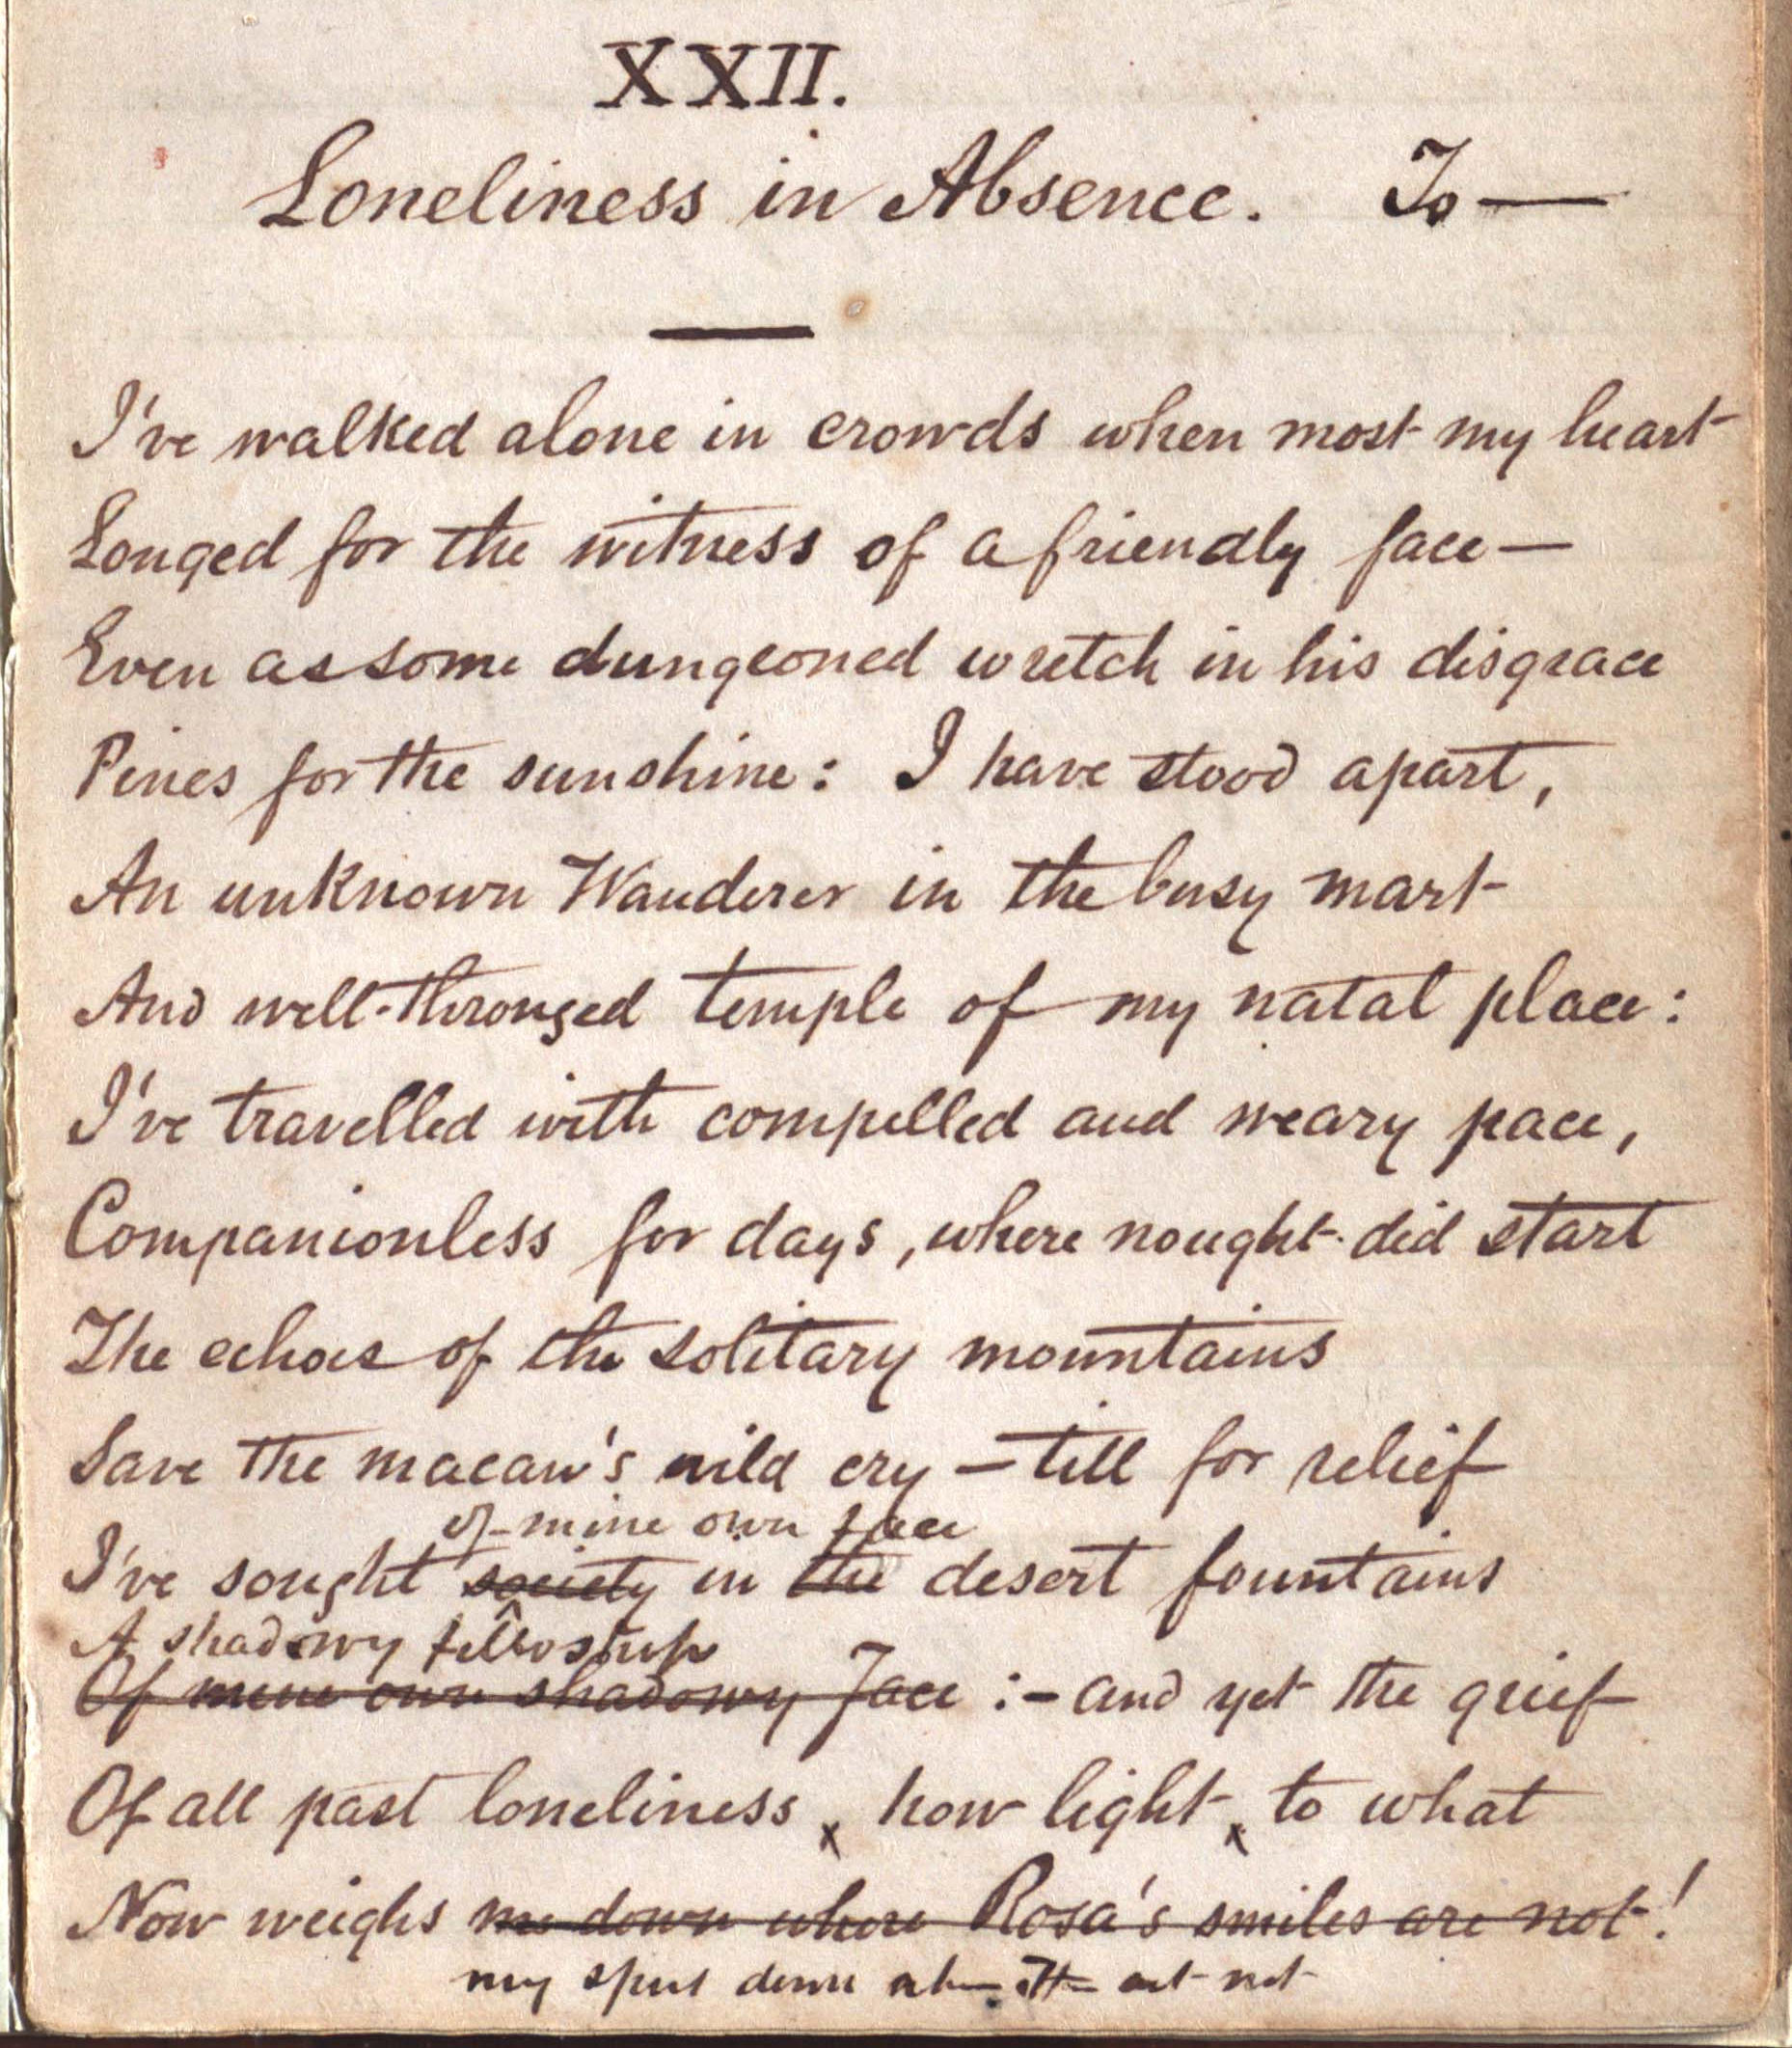 XXII.
Loneliness in Absence. To —
I've walked alone in crowds when most my heart
Longed for the witness of a friendly face —
Even as some dungeoned wretch in his disgrace
Pines for the sunshine: I have stood apart,
An unknown Wanderer in the busy mart
And well-thronged temple of my natal place:
I've travelled with compelled and weary pace,
Companionless for days, where nought did start
The echoes of the solitary mountains
Save the macaw's wild cry — till for relief
of mine own face
I've sought society in the desert fountains
A shadowy fellowship
Of mine own shadowy face :- and yet the grief
Of all past loneliness x how light x to what
Now weighs me down where Rosa's smiles are not!
my spirit down when Thou art not